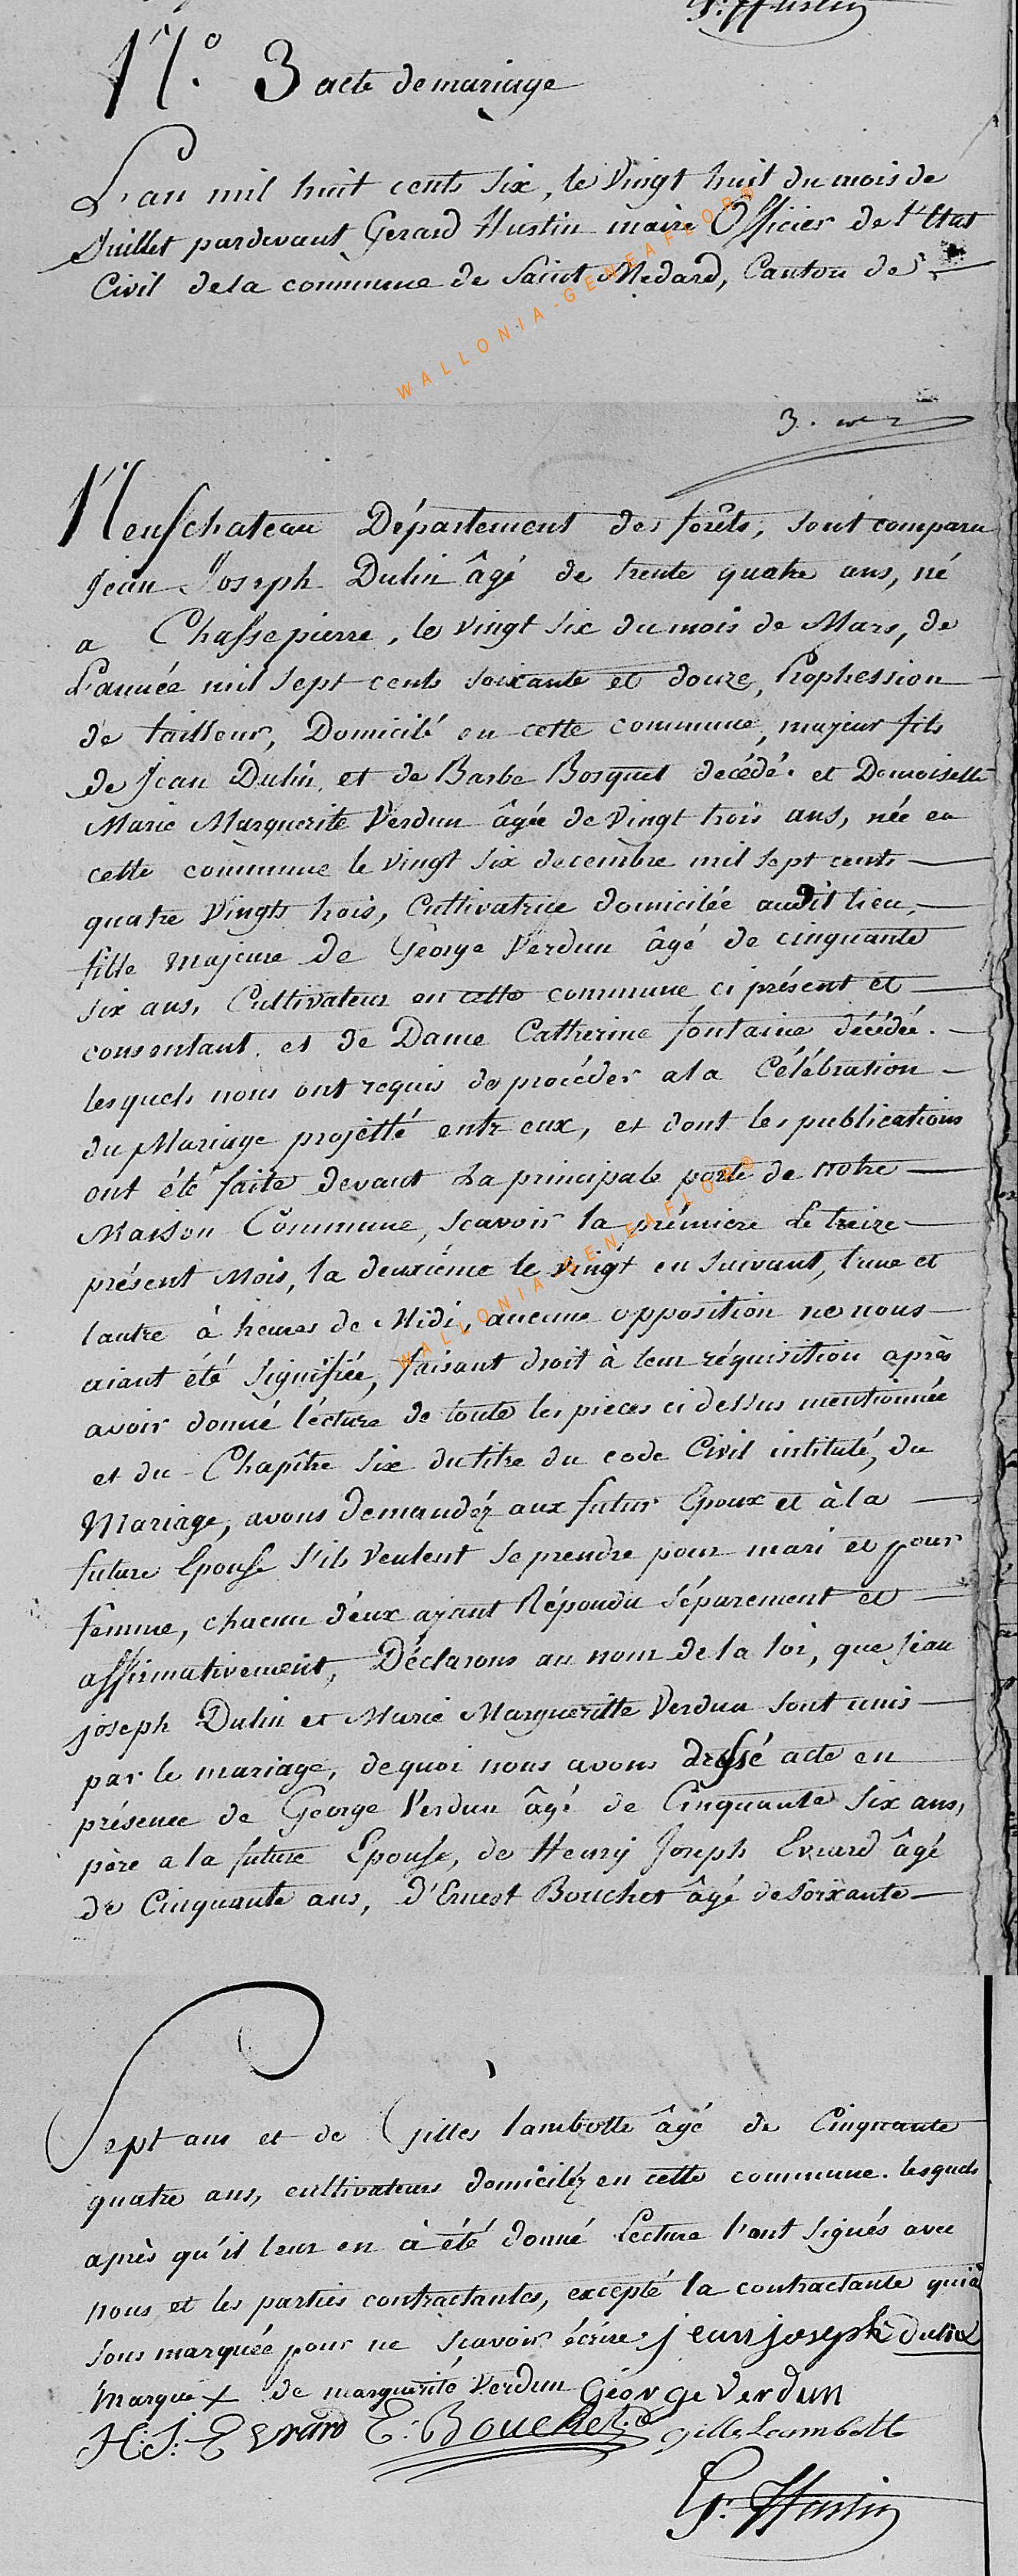 G: Hustin
N.° 3 acte de mariage
L'an mil huit cents six, le vingt huit du mois de
Juillet pardevant Gerard Hustin maire Officier de l'Etat
Civil dela commune de Saint Medard, Canton de
3.
Neufchateau Département des forêts, sont comparu
Jean Joseph Dulin âgé de trente quatre ans, né
a Chassepierre, le vingt six du mois de Mars, de
L'année mil sept cents soixante et douze, Prophession
de tailleur, Domicilé en cette commune, majeur fils
de Jean Dulin, et de Barbe Bosquet decédé. et Demoiselle
Marie Marguerite Verdun âgée de vingt trois ans, née en
cette commune le vingt six decembre mil sept cents
quatre vingts trois, Cultivatrice domicilée audit lieu,
fille majeure de George Verdun âgé de cinquante
six ans, Cultivateur en cette commune ci présent et
consentant. et de Dame Catherine fontaine décédée.
lesquels nous ont requis de procéder a la Célébration
du Mariage projetté entr eux, et dont les publications
ont été faite devant La principale porte de notre
Maison Commune, scavoir la prémiere Le treize
présent Mois, la deuxiéme le vingt en suivant, l'une et
lautre à heures de Midi, aucune opposition ne nous
aiant été signifiée, faisant droit à leur réquisition après
avoir donné lécture de toute les pieces ci dessus mentionnée
et du Chapître six du titre du code Civil intitulé, du
Mariage, avons demandéz aux futur Epoux et à la
future Epouse s'ils veulent se prendre pour mari et pour
femme, chacun d'eux ayant Répondu séparement et
affirmativement, Déclarons au nom de la loi, que jean
joseph Dulin et Marie Margueritte Verdun sont unis
par le mariage, dequoi nous avons dressé acte en
présence de George Verdun âgé de Cinquante six ans,
père a la future Epouse, de Henry Joseph Evrard âgé
de Cinquante ans, d'Ernest Bouchet âgé de soixante
Sept ans et de Gilles lambotte âgé de Cinquante
quatre ans, cultivateurs domiciléz en cette commune. lesquels
après qu'il leur en à été donné Lecture l'ont signés avec
nous et les parties contractantes, excepté la contractante qui a
sous marquée pour ne scavoir écrire, jean joseph dulin
Marque + de marguerite Verdun George Verdun
H: J: Evrard E: Bouchet gille Lambott
G: Hustin
WALLONIA-GENEAFLOR®
WALLONIA-GENEAFLOR®